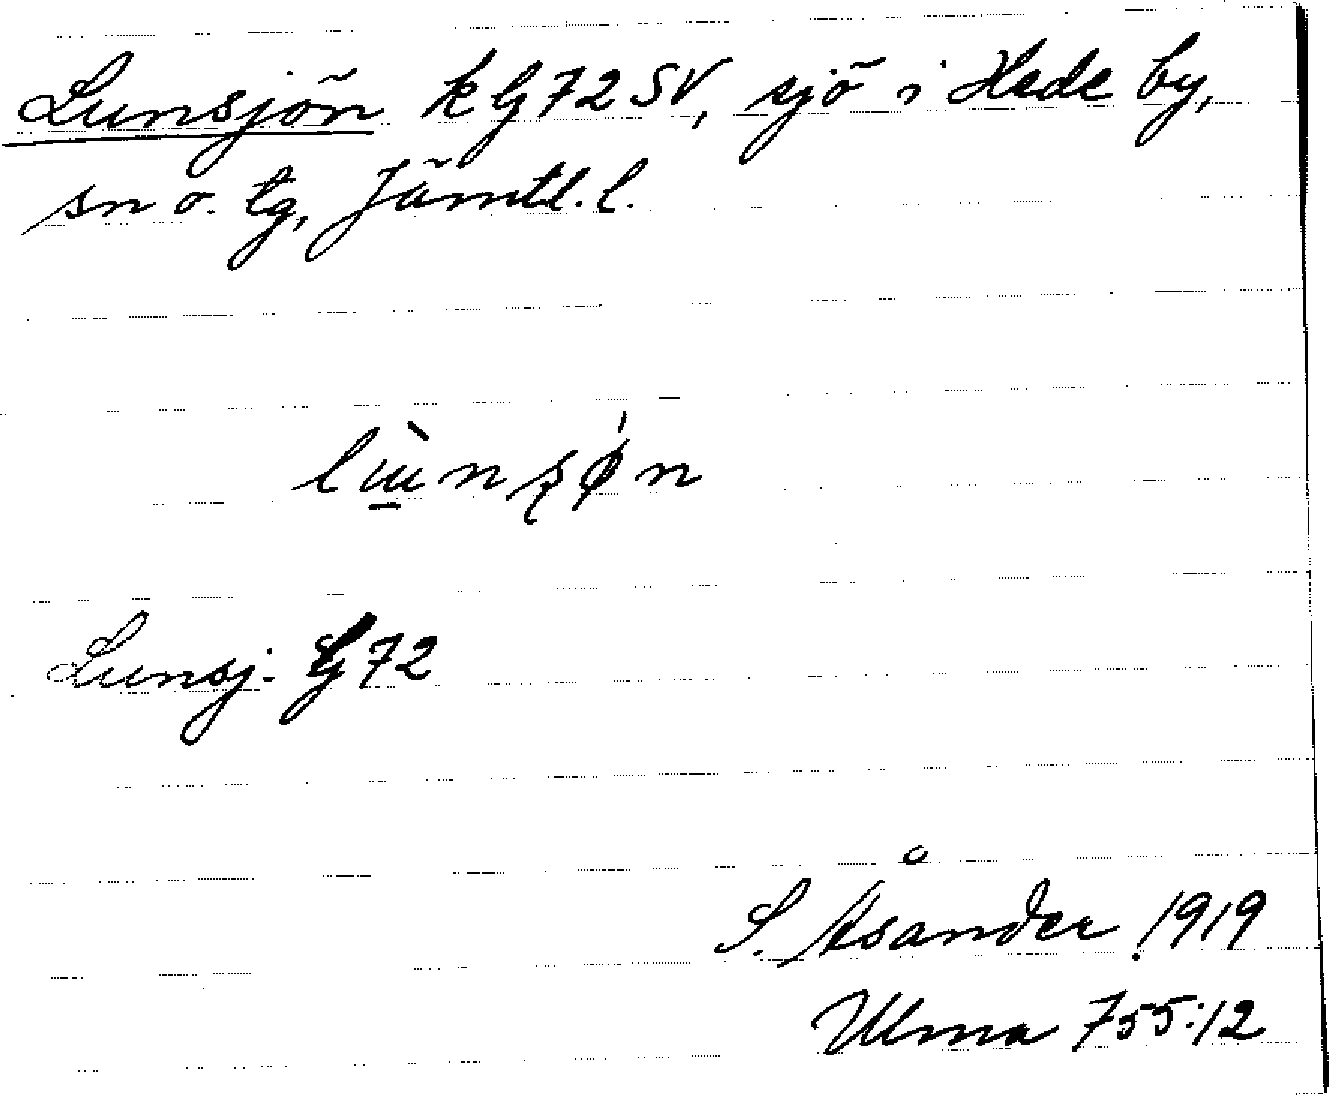 Lunsjön k G72SV, sjö i Hede by,
sn o. tg, Jämtl. l.
Lunsj. G72
S. Åsander 1919
Ulma 755:12